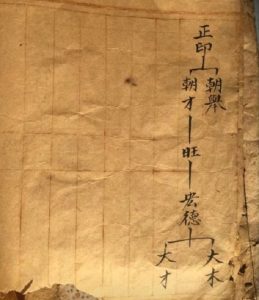 正印
朝舉
朝才
旺
崇德
大木
大才